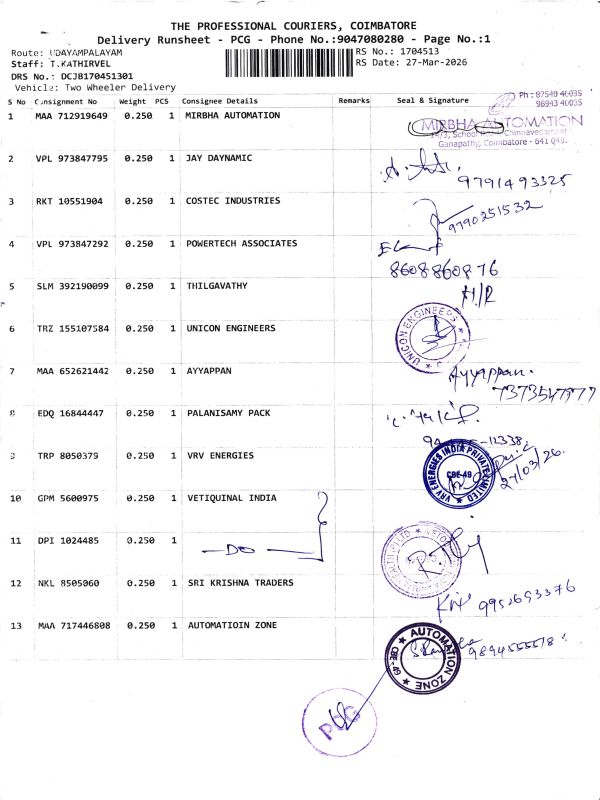 THE PROFESSIONAL COURIERS, COIMBATORE
Delivery Runsheet - PCG - Phone No.:9047080280 - Page No.:1
Route: UDAYAMPALAYAM
RS No.: 1704513
Staff: T.KATHIRVEL
RS Date: 27-Mar-2026
DRS No.: DCJB170451301
Vehicle: Two Wheeler Delivery
S No Consignment No Weight PCS Consignee Details Remarks Seal & Signature
Ph : 87540 40035
98943 40035
1 MAA 712919649 0.250 1 MIRBHA AUTOMATION
MIRBHA AUTOMATION
Ganapathy, Coimbatore - 641 049.
2 VPL 973847795 0.250 1 JAY DAYNAMIC
9791493325
3 RKT 10551904 0.250 1 COSTEC INDUSTRIES
9790251532
4 VPL 973847292 0.250 1 POWERTECH ASSOCIATES
8608860876
5 SLM 392190099 0.250 1 THILGAVATHY
H/R
6 TRZ 155107584 0.250 1 UNICON ENGINEERS
UNICON ENGINEERS
7 MAA 652621442 0.250 1 AYYAPPAN
Ayyappan.
8 EDQ 16844447 0.250 1 PALANISAMY PACK
9 TRP 8050379 0.250 1 VRV ENERGIES
VRV ENERGIES INDIA PRIVATE LIMITED
CBE-49
27/03/26.
10 GPM 5600975 0.250 1 VETIQUINAL INDIA
11 DPI 1024485 0.250 1
—DO—
12 NKL 8505060 0.250 1 SRI KRISHNA TRADERS
13 MAA 717446808 0.250 1 AUTOMATIOIN ZONE
AUTOMATION ZONE
PCG